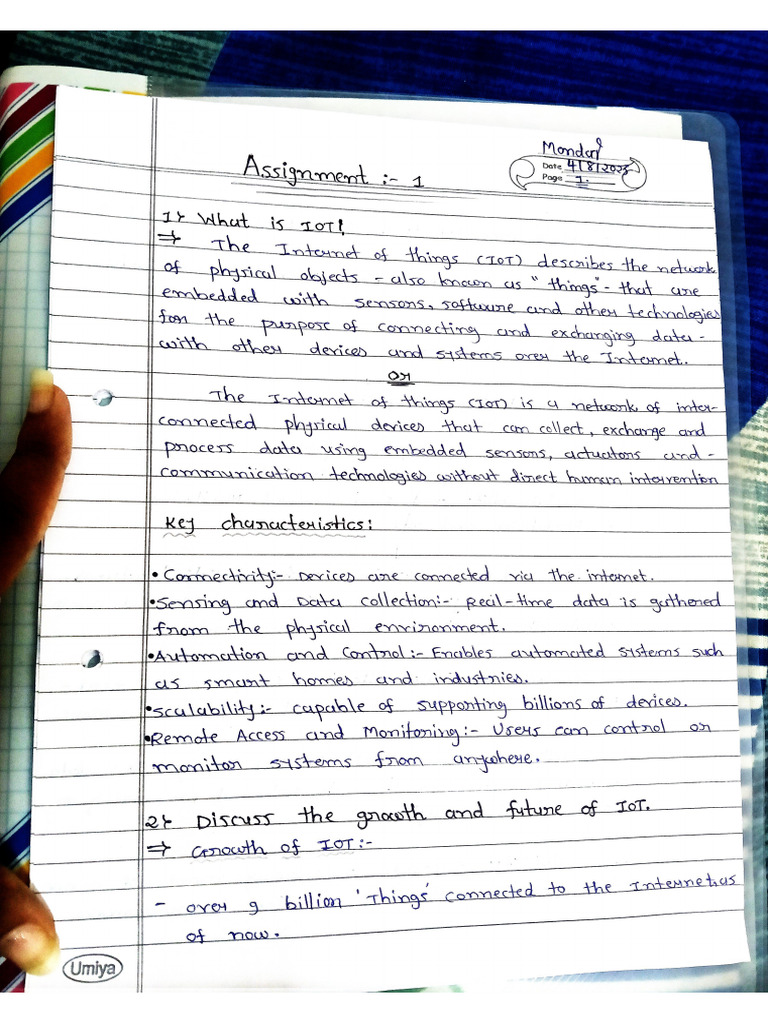 Monday
Date 4/8/2025
Page 1.
Assignment :- 1
1} What is IOT?
⇒ The Internet of things (IOT) describes the network
of physical objects - also known as "things" - that are
embedded with sensors, software and other technologies
for the purpose of connecting and exchanging data -
with other devices and systems over the Internet.
OR
The Internet of things (IOT) is a network of inter-
connected physical devices that can collect, exchange and
process data using embedded sensors, actuators and -
communication technologies without direct human intervention
Key characteristics:
• Connectivity:- Devices are connected via the internet.
• Sensing and Data collection:- Real-time data is gathered
from the physical environment.
• Automation and Control:- Enables automated systems such
as smart homes and industries.
• Scalability:- capable of supporting billions of devices.
• Remote Access and Monitoring:- Users can control or
monitor systems from anywhere.
2} Discuss the growth and future of IOT.
⇒ Growth of IOT:-
- over 9 billion 'Things' connected to the Internet, as
of now.
Umiya